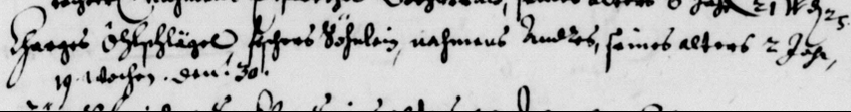 seines alters 8 Jahr 21 W. 25.
Charges Öhlschlägel fischers Söhnlein, nahmens Andres, seines alters 2 Jahr,
19. Wochen. den. 30.